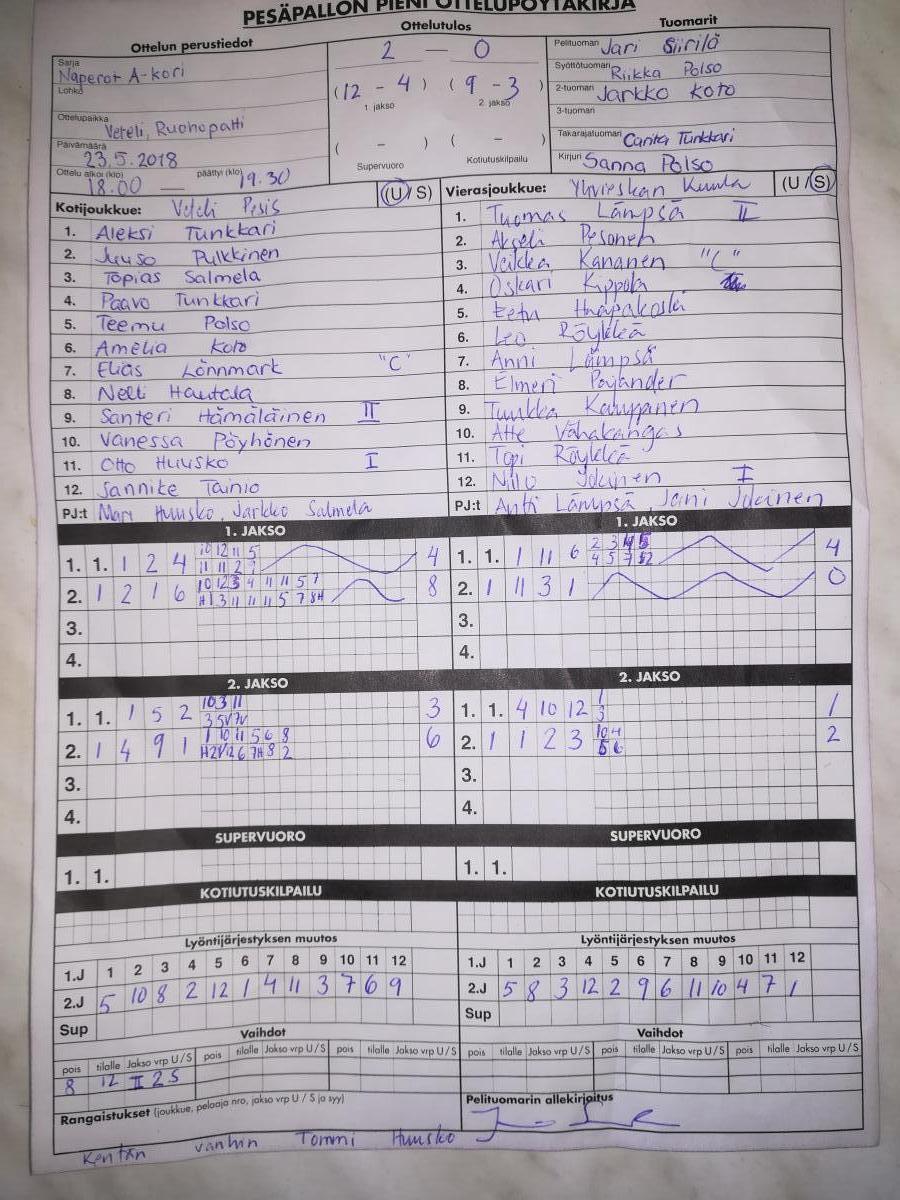 PESÄPALLON PIENI OTTELUPÖYTÄKIRJA
Ottelun perustiedot
Ottelutulos
Tuomarit
Sarja
Naperot A-kori
Lohko
Ottelupaikka
Veteli, Ruohopatti
Päivämäärä
23.5.2018
Ottelu alkoi (klo) 18.00 — päättyi (klo) 19.30
2 — 0
(12 - 4) (9 - 3)
1. jakso 2. jakso
( - ) ( - )
Supervuoro Kotiutuskilpailu
Pelituoman Jari Siirilä
Syöttötuoman Riikka Polso
2-tuoman Jarkko Koto
3-tuoman
Takarajatuoman Carita Tunkkari
Kirjuri Sanna Polso
Kotijoukkue: Veteli Pesis (U/S)
1. Aleksi Tunkkari
2. Juuso Pulkkinen
3. Topias Salmela
4. Paavo Tunkkari
5. Teemu Polso
6. Amelia Koto
7. Elias Lönnmark "C"
8. Nelli Hautala
9. Santeri Hämäläinen II
10. Vanessa Pöyhönen
11. Otto Huusko I
12. Sannike Tainio
PJ:t Mari Huusko, Jarkko Salmela
Vierasjoukkue: Ylivieskan Kuula (U/S)
1. Tuomas Lämpsä II
2. Akseli Pesonen
3. Veikka Kananen "C"
4. Oskari Kippola
5. Eetu Haapakoski
6. Leo Röykkä
7. Anni Lämpsä
8. Elmeri Pojander
9. Tuukka Kauppinen
10. Atte Vähäkangas
11. Topi Röykkä
12. Niilo Jokinen I
PJ:t Antti Lämpsä, Jani Jokinen
1. JAKSO
1. 1. 1 2 4 10 12 11 5 4
2. 1 2 1 6 8
3.
4.
1. JAKSO
1. 1. 1 11 6 4
2. 1 11 3 1 0
3.
4.
2. JAKSO
1. 1. 1 5 2 10 3 11 3
2. 1 4 9 1 1 10 11 5 6 8 6
3.
4.
2. JAKSO
1. 1. 4 10 12 1 3 1
2. 1 1 2 3 10 4 2
3.
4.
SUPERVUORO
1. 1.
SUPERVUORO
1. 1.
KOTIUTUSKILPAILU
KOTIUTUSKILPAILU
Lyöntijärjestyksen muutos
1.J 1 2 3 4 5 6 7 8 9 10 11 12
2.J 5 10 8 2 12 1 4 11 3 7 6 9
Sup
Lyöntijärjestyksen muutos
1.J 1 2 3 4 5 6 7 8 9 10 11 12
2.J 5 8 3 12 2 9 6 11 10 4 7 1
Sup
Vaihdot
pois tilalle Jakso vrp U/S pois tilalle Jakso vrp U/S pois tilalle Jakso vrp U/S
8 12 II 2 S
Vaihdot
pois tilalle Jakso vrp U/S pois tilalle Jakso vrp U/S pois tilalle Jakso vrp U/S
Rangaistukset (joukkue, pelaaja nro, jakso vrp U / S ja syy)
Pelituomarin allekirjoitus
Kentän vanhin Tommi Huusko